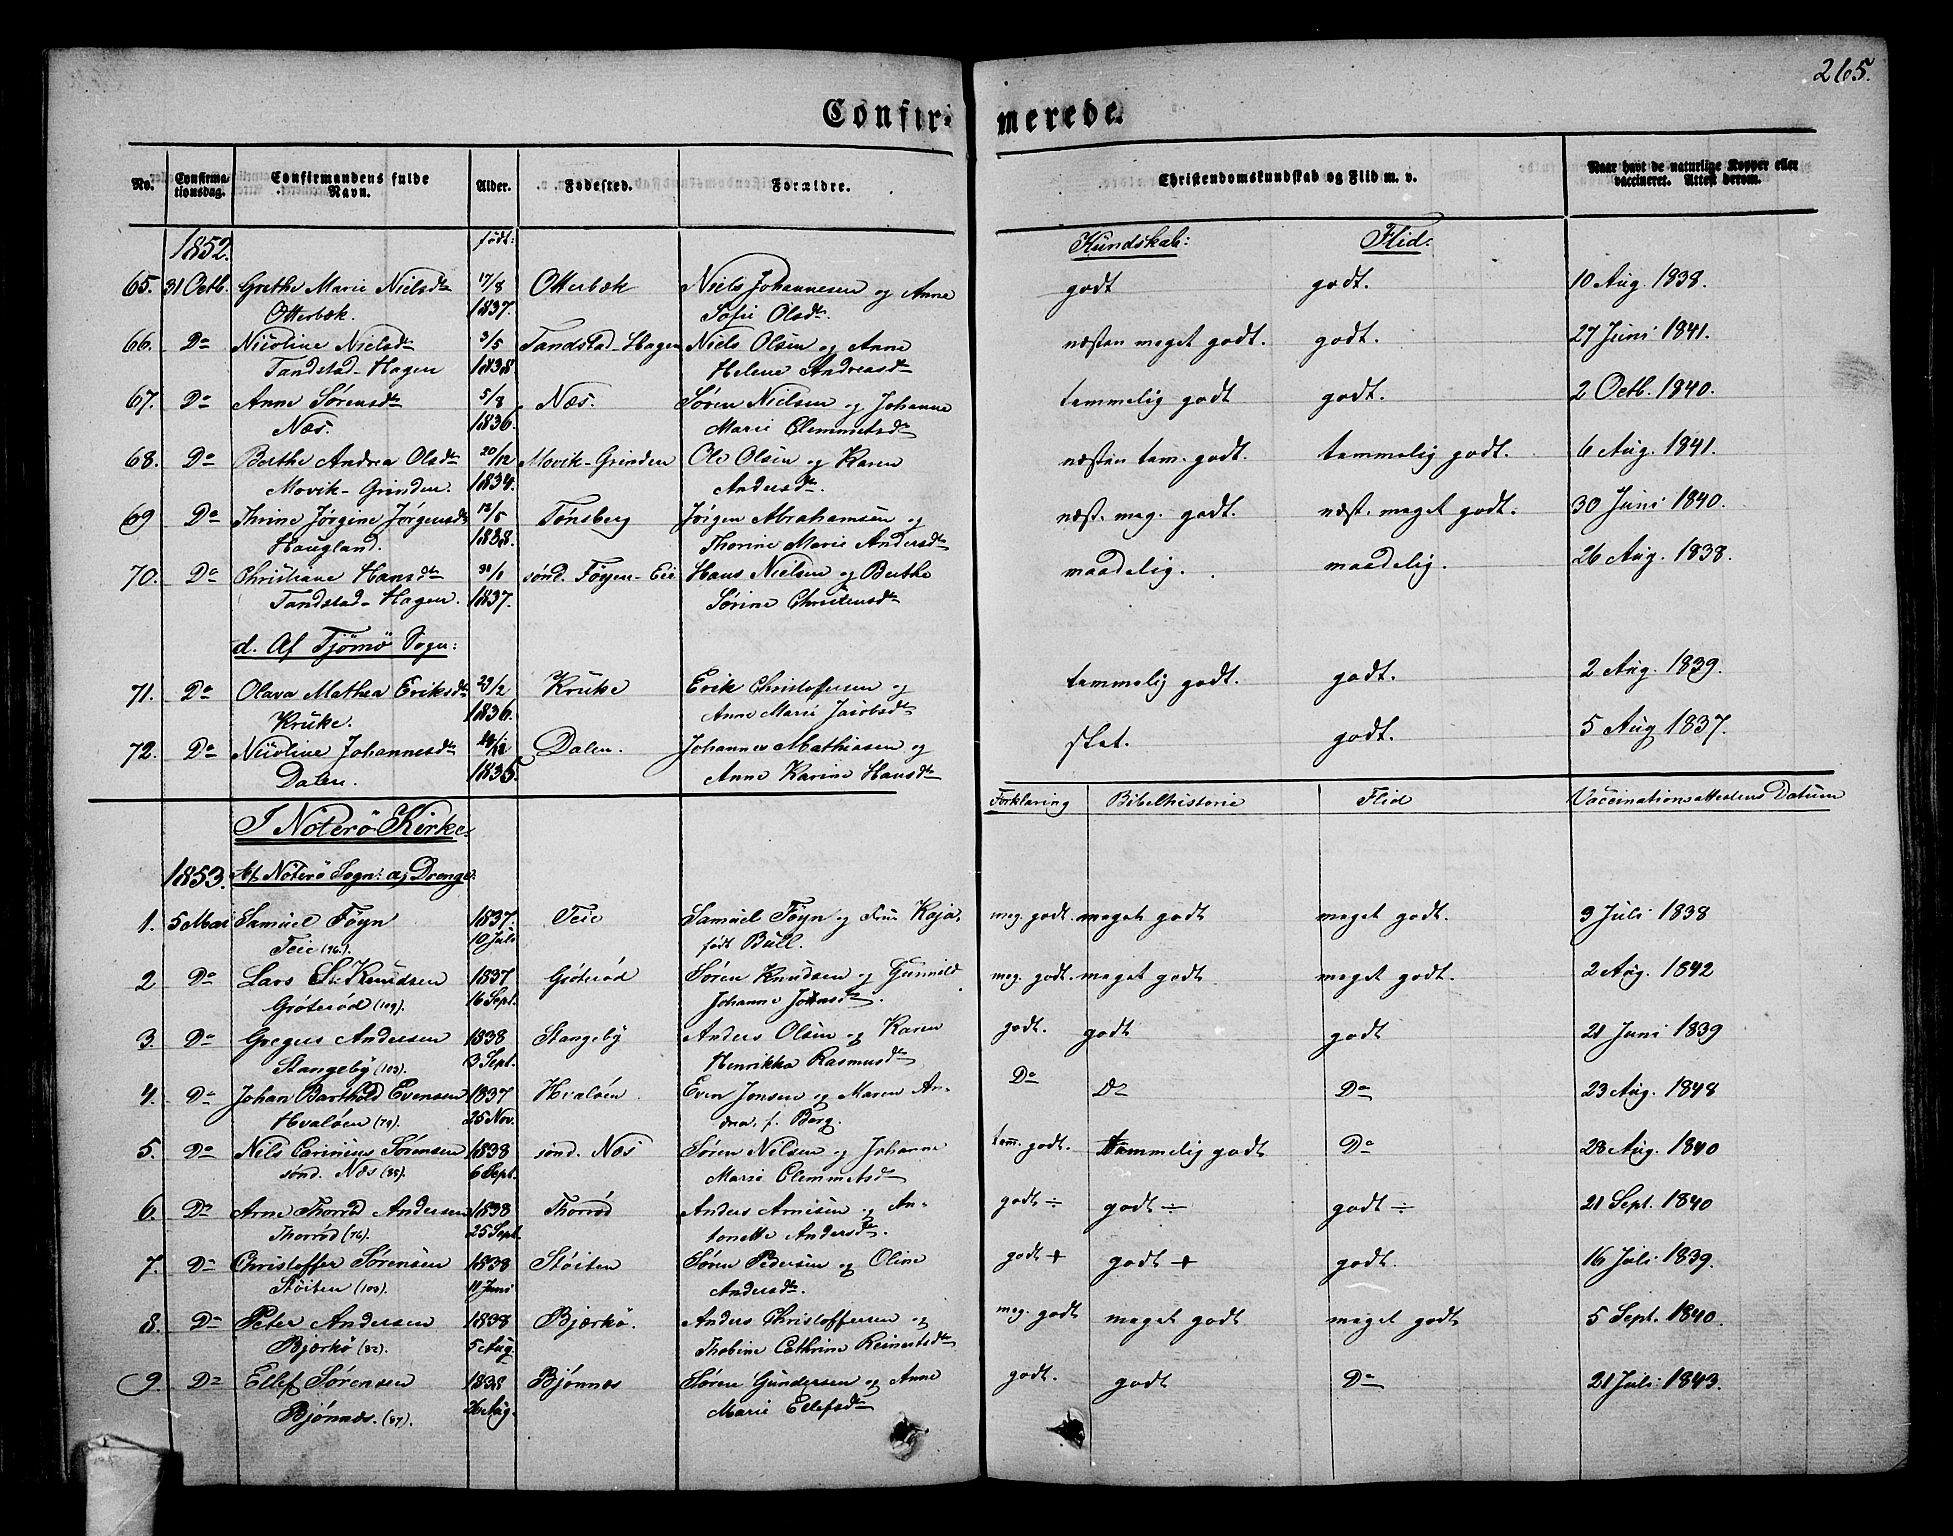 265.
Confirmerede.
No. Confirmationsdag. Confirmandens fulde Navn. Alder. Fødested. Forældre. Christendomskundskab og Flid m. v. Naar havt de naturlige Kopper eller vaccineret. Attest derom.
1852. født: Kundskab: Flid:
65. 31 Octb. Grethe Marie Nielsdtr 17/8 Otterbæk Niels Johannesen og Anne godt godt. 10 Aug. 1838.
Otterbæk. 1837. Sofie Olsdtr.
66. Do Nicoline Nielsdtr 3/5 Tandstad-Hagen Niels Olsen og Anne næsten meget godt. godt. 27 Juni 1841.
Tandstad-Hagen 1838 Helene Andreasdtr
67. Do Anne Sørensdtr 5/8 Næs. Søren Nielsen og Johanne temmelig godt godt. 2 Octb. 1840.
Næs. 1836. Marie Clemmetsdtr
68. Do Berthe Andrea Olsdtr 20/12 Movik-Grinden Ole Olsen og Karen næsten tem. godt. temmelig godt. 6 Aug. 1841.
Movik-Grinden. 1834. Andersdtr.
69 Do Thrine Jørgine Jørgensdtr 12/5 Tønsberg Jørgen Abrahamsen og næst. meg. godt. næst. meget godt. 30 Juni 1840.
Haugland. 1838. Thorine Marie Andersdtr
70. Do Christiane Hansdtr sønd. Føyen-Eie Hans Nielsen og Berthe maadelig. maadelig. 26 Aug. 1838.
Tandstad-Hagen. 1837. Sørine Christensdtr
d. Af Tjömö Sogn:
71. Do Olava Mathea Eriksdtr 23/2 Kruke Erik Christoffersen og temmelig godt. godt. 2 Aug. 1839.
Kruke. 1836. Anne Marie Jacobsdtr
72. Do Nicoline Johannesdtr Dalen. Johannes Mathiasen og slet. godt. 5 Aug 1837.
Dalen. 1835. Anne Karine Hansdtr
Forklaring Bibelhistorie Flid Vaccinationsattestens Datum
I Nöterö Kirke:
1853. Af Nöterö Sogn: a, Drenge:
1. 5 Mai Samuel Føyn 1837. Teie Samuel Føyn og Fru Kaja meg. godt. meget godt meget godt. 3 Juli 1838
Teie (96). 10 Juli født Bull.
2 Do Lars S. Knudsen 1837 Gröteröd Søren Knudsen og Gunnild meg. godt. meget godt meget godt. 2 Aug. 1842
Gröteröd (109). 16 Sept. Johanne Johnsdtr.
3. Do Gregers Andersen 1838 Stangeby Anders Olsen og Karen godt. godt godt 21 Juni 1839
Stangeby (103). 3 Sept. Henrikka Rasmusdtr
4. Do Johan Barthold Evensen 1837 Hvaløen Even Jonsen og Maren An- Do Do Do 23 Aug. 1848
Hvaløen (79). 25 Nov. drea, f. Berg.
5. Do Nils Carinius Sørensen 1838 sönd. Næs Søren Nilsen og Johanne tem. godt. temmelig godt Do 28 Aug. 1840
sönd. Næs (85). 6 Sept. Marie Clemmetsdtr
6. Do Arne Thorrød Andersen 1838 Thorrød Anders Arnesen og An- godt ÷ godt ÷ godt ÷ 21 Sept. 1840
Thorrød (76). 25 Sept. tonette Andersdtr.
7. Do Christoffer Sørensen 1838 Støiten Søren Pedersen og Oline godt + godt + godt. 16 Juli 1839.
Støiten (103). 11 Juni Andersdtr.
8. Do Peter Andersen 1838 Bjærkö. Anders Christoffersen og meg. godt meget godt meget godt 5 Sept. 1840.
Bjærkö (82). 5 Aug. Thobine Cathrine Reinertsdtr
9. Do Ellef Sørensen 1838 Bjønnæs Søren Gundersen og Anne godt. godt Do 21 Juli 1843.
Bjønnæs. (87). 26 Aug. Marie Ellefsdtr